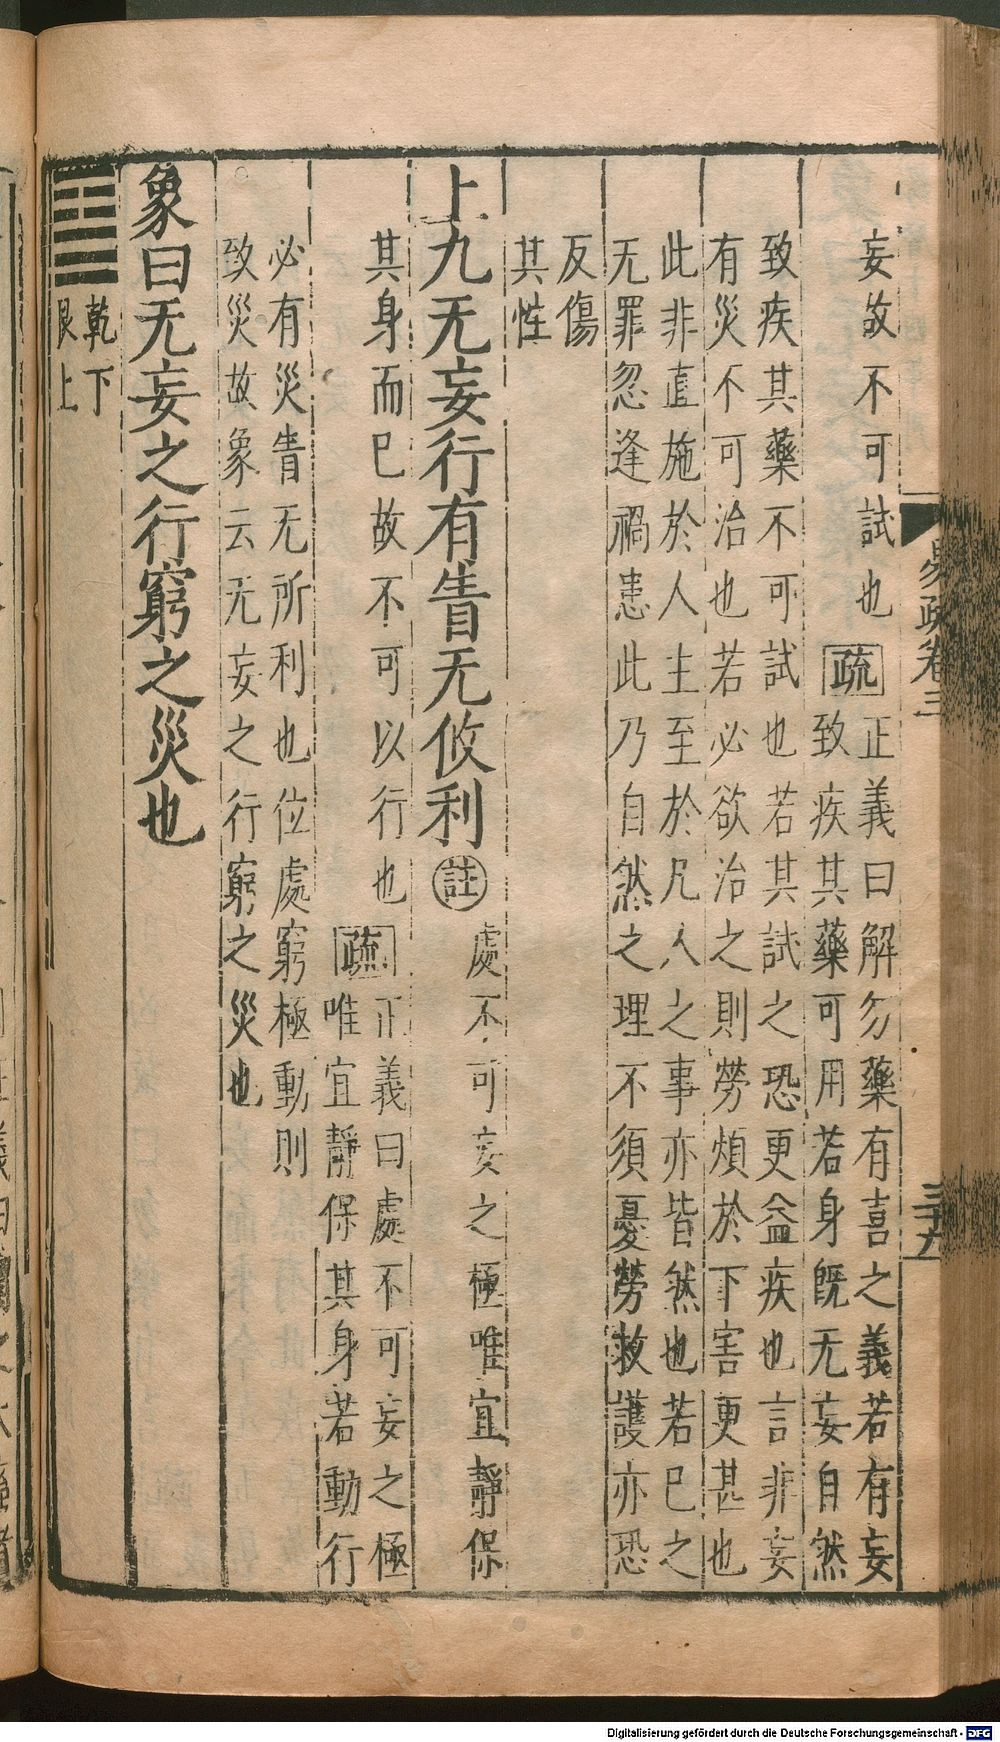 妄故不可試也
疏
正義曰解勿藥有喜之義若有妄
致疾其藥可用若身旣无妄自然
致疾其藥不可試也若其試之恐更益疾也言非妄
有災不可治也若必欲治之則勞煩於下害更甚也
此非直施於人主至於凡人之事亦皆然也若已之
无罪忽逢禍患此乃自然之理不須憂勞救護亦恐
反傷
其性
上九无妄行有眚无攸利
註
處不可妄之極唯宜靜保
其身而已故不可以行也
疏
正義曰處不可妄之極
唯宜靜保其身若動行
必有災眚无所利也位處窮極動則
致災故象云无妄之行窮之災也
象曰无妄之行窮之災也
乾下
艮上
易疏卷三
Digitalisierung gefördert durch die Deutsche Forschungsgemeinschaft - DFG